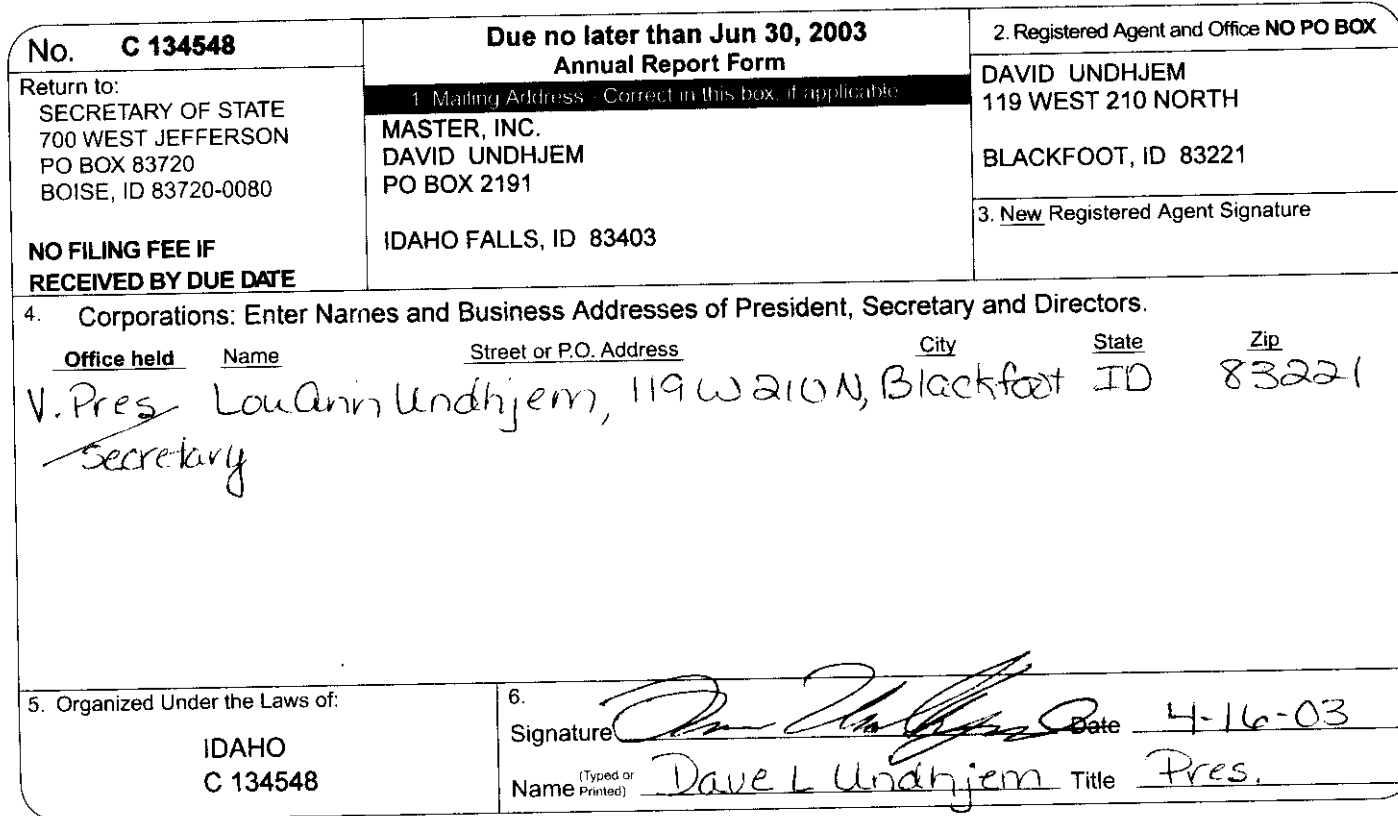 No. C 134548
Return to:
SECRETARY OF STATE
700 WEST JEFFERSON
PO BOX 83720
BOISE, ID 83720-0080
NO FILING FEE IF
RECEIVED BY DUE DATE
Due no later than Jun 30, 2003
Annual Report Form
1. Mailing Address - Correct in this box, if applicable
MASTER, INC.
DAVID UNDHJEM
PO BOX 2191
IDAHO FALLS, ID 83403
2. Registered Agent and Office NO PO BOX
DAVID UNDHJEM
119 WEST 210 NORTH
BLACKFOOT, ID 83221
3. New Registered Agent Signature
4. Corporations: Enter Names and Business Addresses of President, Secretary and Directors.
Office held Name Street or P.O. Address City State Zip
V. Pres LouAnn Undhjem, 119 W 210 N, Blackfoot ID 83221
/Secretary
5. Organized Under the Laws of:
IDAHO
C 134548
6.
Signature Date 4-16-03
Name (Typed or Printed) Dave L Undhjem Title Pres.